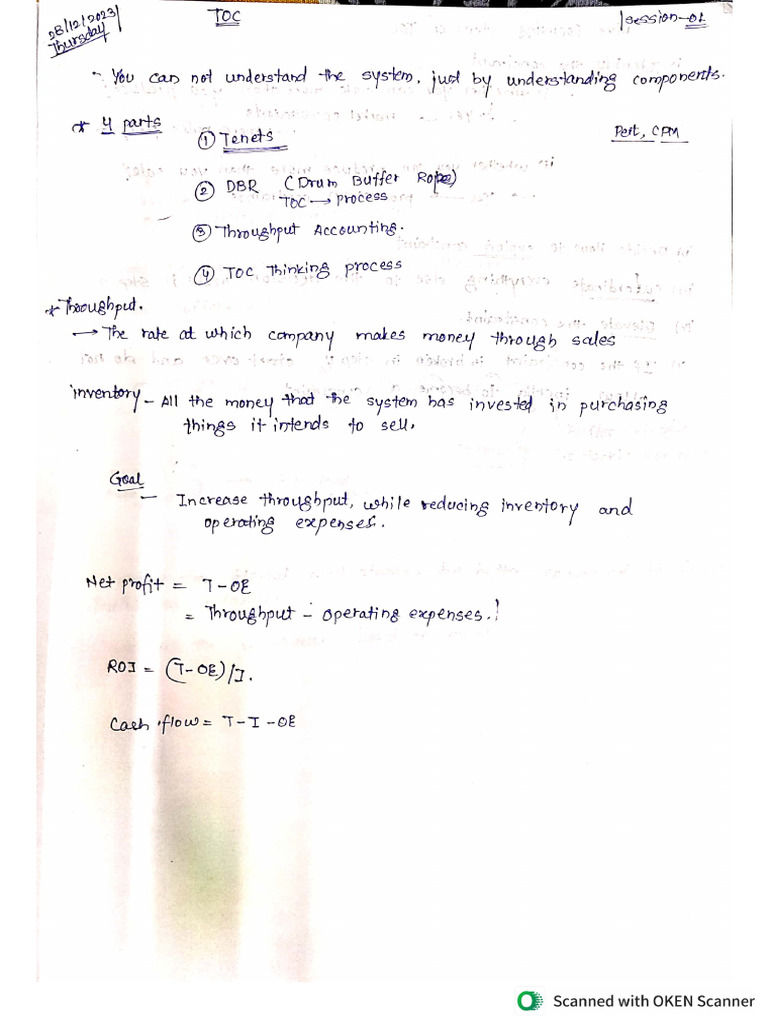 28/12/2023
Thursday
TOC
Session-01
- You can not understand the system, just by understanding components.
* 4 parts
① Tenets
Pert, CPM
② DBR (Drum Buffer Rope)
TOC → process
③ Throughput Accounting.
④ TOC Thinking process
* Throughput.
→ The rate at which company makes money through sales
inventory - All the money that the system has invested in purchasing
things it intends to sell.
Goal
- Increase throughput, while reducing inventory and
operating expenses.
Net profit = T-OE
= Throughput - operating expenses.
ROI = (T-OE)/I.
Cash flow = T-I-OE
Scanned with OKEN Scanner